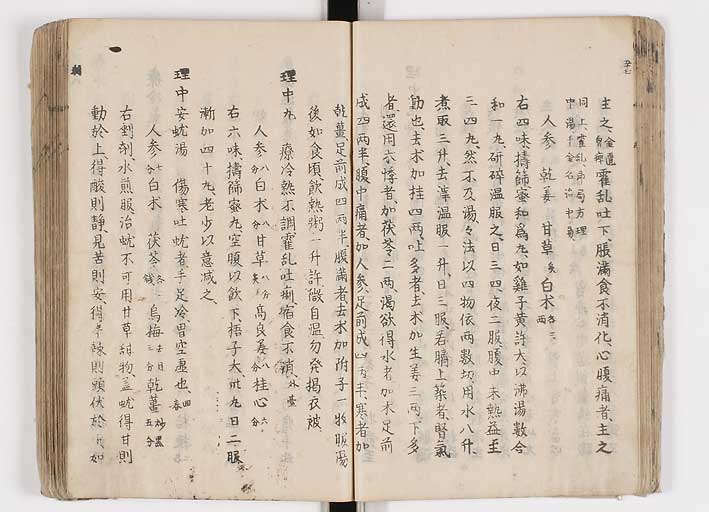 主之 霍乱吐下脹滿食不消化、心腹痛者、主之
同上霍乱局方理
人参 乾姜 甘草 炙 白朮 各三両
右四味、擣篩蜜和為丸、如雞子黄許大、以沸湯数合
和一丸、研碎温服之、日三四、夜二服、腹中未熱、益至
三四丸、然不及湯、々法以四物依両数切、用水八升
煮取三升、去滓温服一升、日三服、若臍上築者、腎氣
動也、去朮加桂四両、吐多者、去朮加生姜三両、下多
者還用朮、悸者、加茯苓二両、渴欲得水者、加朮足前
成四両半、腹中痛者、加人参、足前成四両半、寒者加
乾薑足前成四両半、腹滿者去朮加附子一枚、服湯
後如食頃飲熱粥一升許、微自温、勿発揭衣被
理中丸 療冷熱不調、霍乱吐痢、宿食不消 外臺
人参 八分 白朮 八分 甘草 八分炙 高良姜 八分 桂心 六分
右六味擣篩蜜丸、空腹以飲下、梧子大、卅丸日二服
漸加四十丸、老少以意減之、
理中安蚘湯 傷寒吐蚘者、手足冷、胃空虚也、
人参 白朮 茯苓 烏梅 三分 乾薑 炒黒五分
右剉剤、水煎服、治蚘不可用甘草甜物、盖蚘得甘則
動於上、得酸則静、見苦則安、得辛辣則頭伏於下、如